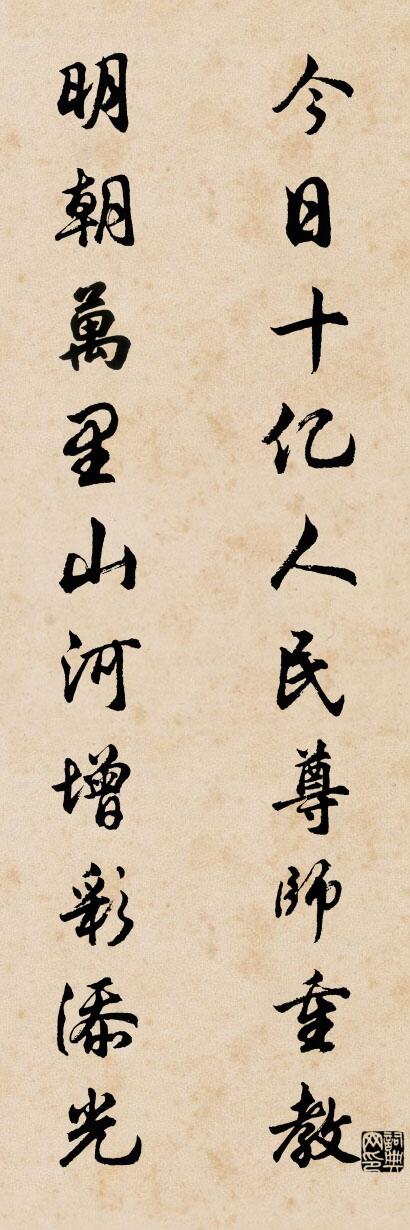 今日十亿人民尊師重教
明朝萬里山河增彩添光
詞典网印